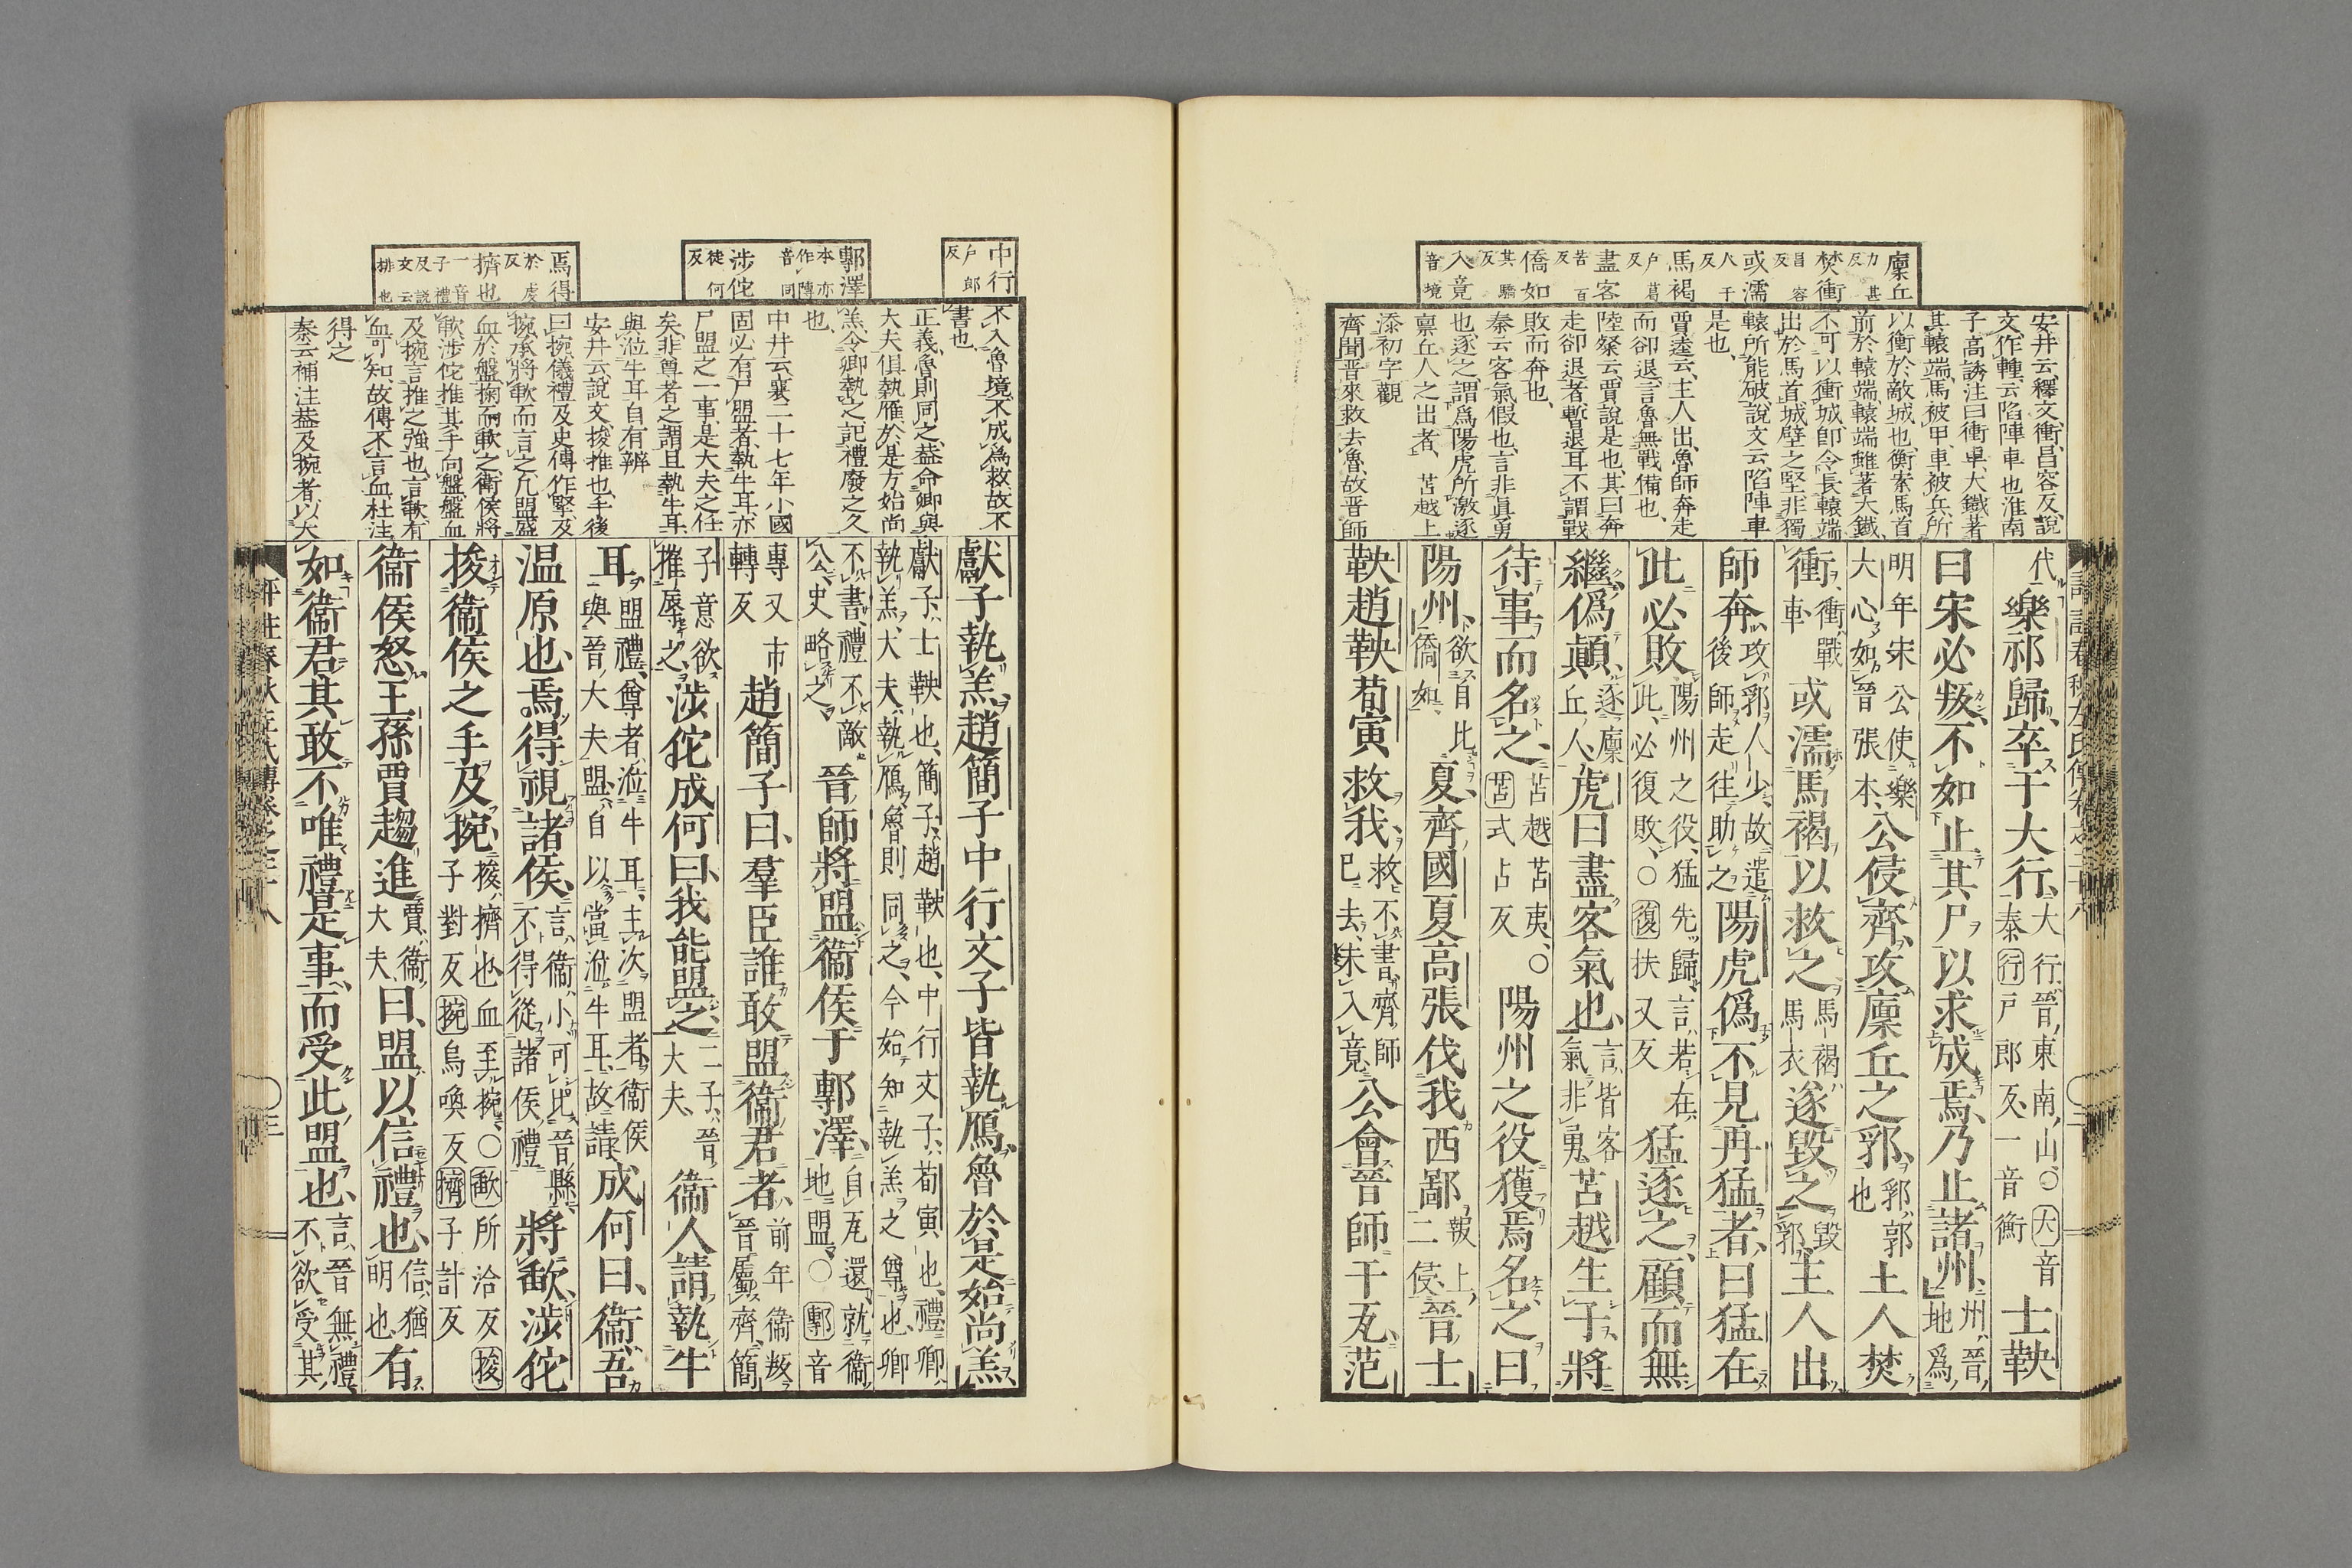 廩丘力甚反
焚衝昌容反
或濡人于反
馬褐户葛反
盡客苦百反
僑如其驕反
入竟音境
安井云、釋文、衝、昌容反、說
文作𨏞、云陷陣車也、淮南
子高誘注曰、衝車、大鐵著
其轅端、馬被甲、車被兵、所
以衝於敵城也、衡索馬首
前於轅端、轅端雖著大鐵、
不可以衝城、即令長轅端
出於馬首、城壁之堅、非獨
轅所能破、說文云、陷陣車
是也、
賈逵云、主人出、魯師奔走
而卻退、言魯無戰備也、
陸粲云、賈說是也、其曰奔
走卻退者、暫退耳、不謂戰
敗而奔也、
秦云、客氣、假也、言非眞勇
也、逐之、謂爲陽虎所激逐
廩丘人之出者、苫越上
添初字觀
齊聞晉來救去魯、故晉師
代樂祁歸、卒于大行、大行、晉東南山、○大音泰行戸郎反、一音衡士鞅
曰、宋必叛、不如止其尸以求成焉、乃止諸州、州、晉地、爲
明年宋公使樂大心如晉張本、公侵齊、攻廩丘之郛、郛、郭也主人焚
衝、衝、戰車或濡馬褐以救之、馬褐、馬衣遂毀之、毀郛主人出、
師奔、攻郛人少、故遣後師走往助之陽虎僞不見冉猛者、曰、猛在
此必敗、陽州之役、猛先歸、言若在此、必復敗、○復扶又反猛逐之、顧而無
繼、僞顛、逐廩丘人、虎曰、盡客氣也、言皆客氣非勇苫越生子、將
待事而名之、苫越苫夷、○苫式占反陽州之役獲焉、名之曰
陽州、欲自比僑如、夏、齊國夏高張伐我西鄙、報上二侵、晉士
鞅趙鞅荀寅救我、救不書、齊師已去、未入竟、公會晉師于瓦、范
中行户郎反
鄟澤本亦作𫝊音同
涉佗徒何反
焉得於虔反
擠也一音子禮反說文云排也
不入魯境、不成爲救、故不
書也、
正義、魯則同之、蓋命卿與
大夫俱執雁、於是方始尚
羔、令卿執之、記禮廢之久
也、
中井云、襄二十七年、小國
固必有尸盟者、執牛耳、亦
尸盟之一事、是大夫之任
矣、非尊者之謂、且執牛耳、
與涖牛耳、自有辨
安井云、說文、捘、推也、手後
曰捥、儀禮及史傳作掔、及
捥、承將歃而言之、凡盟盛
血於盤、掬而歃之、衛侯將
歃、涉佗推其手向盤、盤血
及捥、言推之強也、言歃有
血可知、故傳不言血、杜注
得之
秦云、補注、蓋及捥者、以大
獻子執羔、趙簡子中行文子皆執鴈、魯於是始尚羔、
獻子、士鞅也、簡子、趙鞅也、中行文子、荀寅也、禮、卿執羔、大夫執鴈、魯則同之、今始知執羔之尊也、卿
不書、禮不敵公、史略之、晉師將盟衞侯于鄟澤、自瓦還、就衞地盟、○鄟音
專又市轉反趙簡子曰、羣臣誰敢盟衞君者、前年衞叛晉屬齊、簡
子意欲摧辱之、涉佗成何曰、我能盟之、二子、晉大夫、衞人請執牛
耳、盟禮、尊者涖牛耳、主次盟者、衞侯與晉大夫盟、自以當涖牛耳、故請、成何曰、衞、吾
温原也、焉得視諸侯、言衞小、可比晉縣、不得從諸侯禮將歃、涉佗
捘衞侯之手及捥、捘、擠也、血至捥、○歃所洽反捘子對反捥烏喚反擠子計反
衞侯怒、王孫賈趨進、賈、衞大夫、曰、盟以信禮也、信、猶明也、有
如衞君、其敢不唯禮是事、而受此盟也、言晉無禮、不欲受其